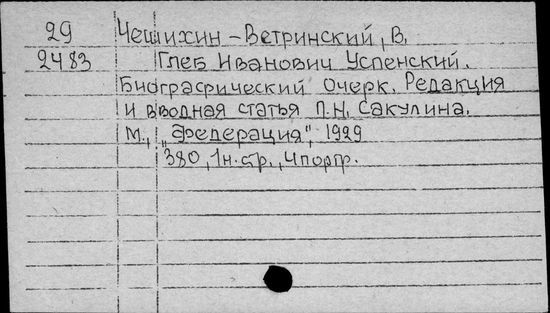 29 Чешихин-Ветринский, В.
2483 Глеб Иванович Успенский.
Биографический очерк. Редакция
и вводная статья П.Н. Сакулина.
М., "Федерация", 1929
380, 1н.стр., 4 портр.